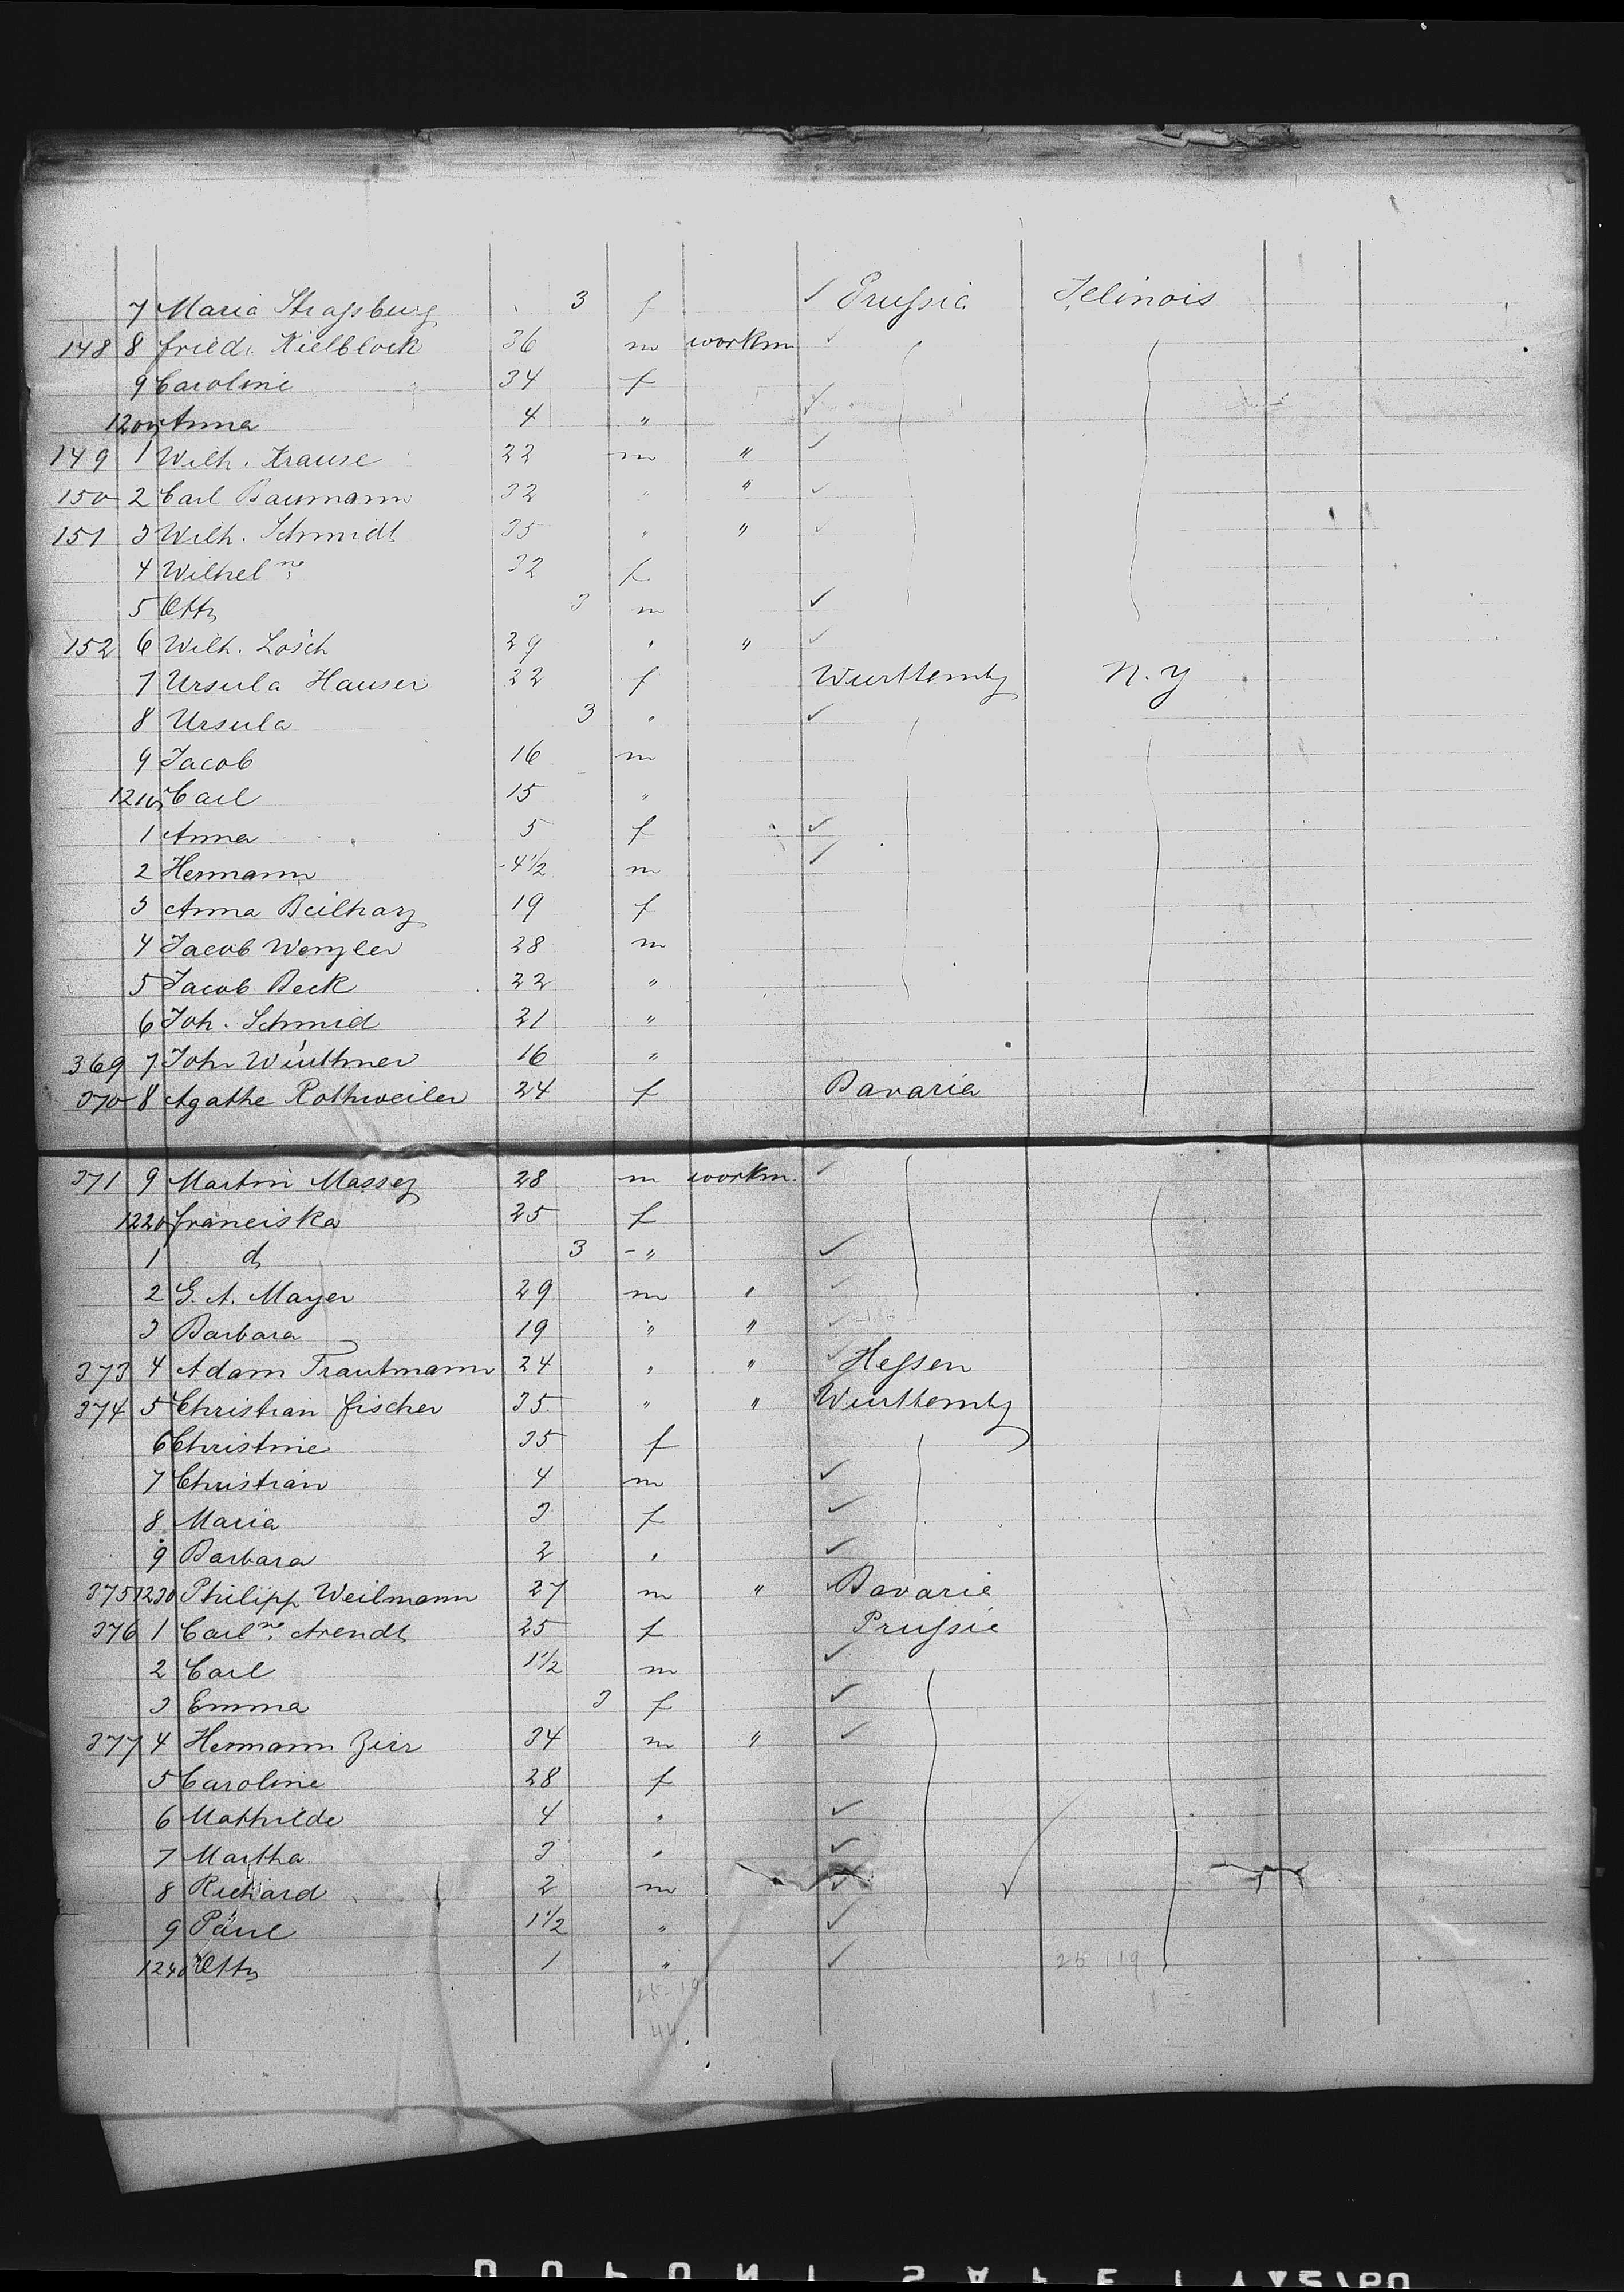 7 Maria Strassburg 3 f ✓ Prussia Jelinois
148 8 Friedr. Kielblock 36 m workm ✓
9 Caroline 34 f
1200 Anna 4 " ✓
149 1 Wilh. Krause 22 m " ✓
150 2 Carl Baumann 32 " " ✓
151 3 Wilh. Schmidt 35 " " ✓
4 Wilhelne 32 f
5 Otto 3 m ✓
152 6 Wilh. Lösch 29 " " ✓
7 Ursula Hauser 22 f Wurttembg N. Y
8 Ursula 3 " ✓
9 Jacob 16 m
1210 Carl 15 "
1 Anna 5 f ✓
2 Hermann 4½ m ✓
3 Anna Beilharz 19 f
4 Jacob Wenzler 28 m
5 Jacob Beck 22 "
6 Joh. Schmid 21 "
369 7 Joh Würthner 16 "
370 8 Agathe Rothweiler 24 f Bavaria
371 9 Martin Massez 28 m workm. ✓
1220 Franciska 25 f
1 do 3 " ✓
2 G. A. Mayer 29 m " ✓
3 Barbara 19 " " ✓
373 4 Adam Trautmann 24 " " ✓ Hessen
374 5 Christian Fischer 35 " " Wurttembg
6 Christine 35 f
7 Christian 4 m ✓
8 Maria 3 f ✓
9 Barbara 2 " ✓
375 1230 Philipp Weilmann 27 m " Bavaria
376 1 Carlne Arendt 25 f Prussia
2 Carl 1½ m ✓
3 Emma 3 f ✓
377 4 Hermann Zirr 34 m " ✓
5 Caroline 28 f
6 Mathilde 4 " ✓
7 Martha 3 " ✓
8 Richard 2 m ✓
9 Paul 1½ " ✓
1240 Otto 1 " ✓ 25 119
25-19
44